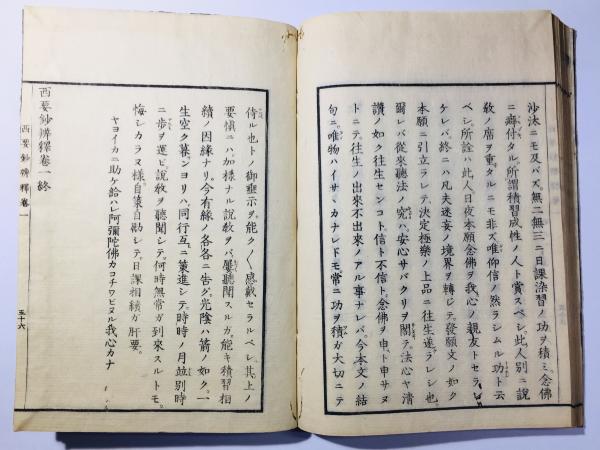 沙汰ニモ及バズ。無二無三ニ日課染習ノ功ヲ積ミ。念佛
ニ癖付タル。所謂積習成性ノ人ト賞スベシ。此人別ニ説
敎ノ席ヲ重タルニモ非ズ唯仰信ノ然ラシムル功ト云
ベシ。所詮ハ此人日夜本願念佛ヲ我心ノ親友トセラレ
ケレバ。終ニハ凡夫迷妄ノ境界ヲ轉ジテ。發願文ノ如ク
本願ニ引立ラレテ。決定極樂ノ上品ニ往生遂ラレシ也。
爾レバ從來聽法ノ究ハ。安心サバクリヲ閣テ。法心ヤ清
讃ノ如ク往生センコト信ト不信ト。念佛ヲ申ト申サヌ
トニテ。往生ノ出來不出來ノアル事ナレバ。今本文ノ結
句ニ。唯物ハイサヽカナレドモ。常ニ功ヲ積ガ大切ニテ
侍ル也トノ御垂示ヲ。能ク〱感戴セラルベシ。其上ノ
要愼ニハ。加樣ナル説敎ヲバ屢聽聞スルガ。能キ積習相
續ノ因縁ナリ。今有縁ノ各各ニ告グ。光陰ハ箭ノ如ク。一
生空ク暮ンヨリハ。同行互ニ策進シテ。時時ノ月並別時
ニ歩ヲ運ビ説敎ヲ聽聞シテ。何時無常ガ到來スルトモ。
悔シカラヌ樣。自策自勵シテ。日課相續ガ肝要。
ヤヨイカニ助ケ給ハレ阿彌陀佛カコチワビヌル我心カナ
西要鈔辨釋卷一終
西要鈔辨釋卷一
五十六